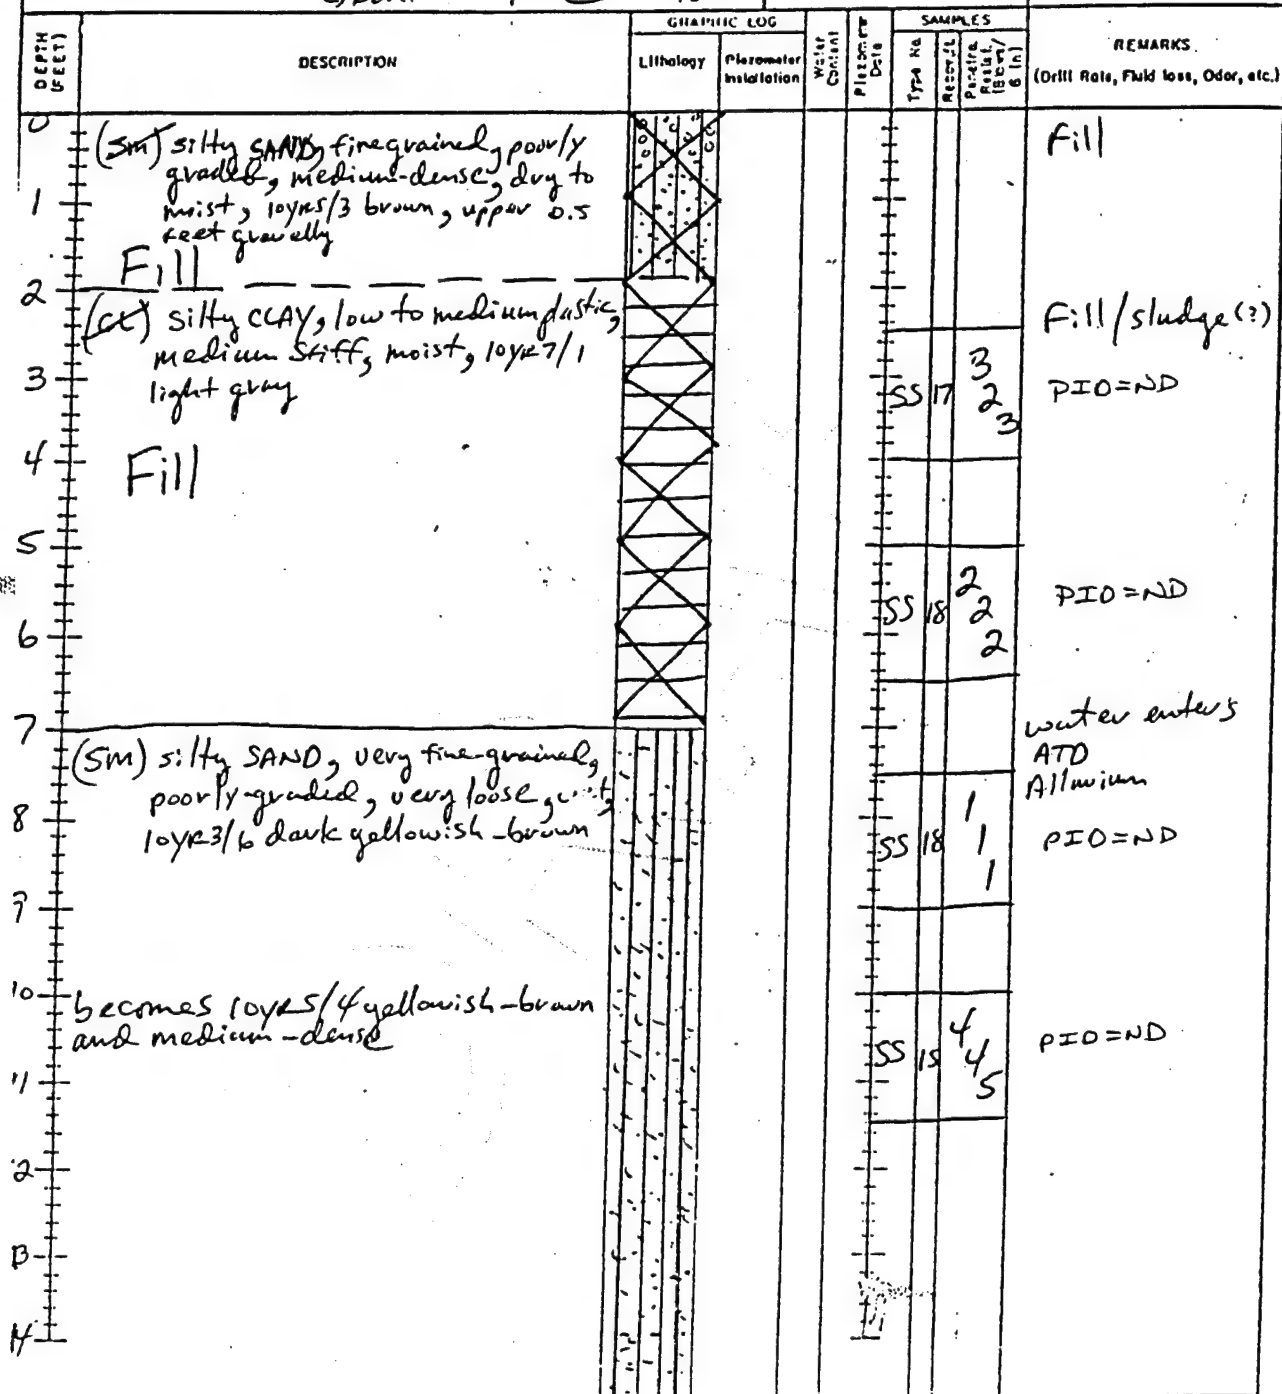 GRAPHIC LOG
SAMPLES
DEPTH (FEET)
DESCRIPTION
Lithology
Piezometer Installation
Water Content
Piezometer Data
Type No.
Penetra. Resist. (Blows/ 6 in)
REMARKS
(Drill Rate, Fluid loss, Odor, etc.)
0
(SM) silty SAND, fine grained, poorly
graded, medium-dense, dry to
moist, 10YR5/3 brown, upper 0.5
feet gravelly
Fill
Fill
1
2
(CL) silty CLAY, low to medium plastic,
medium stiff, moist, 10YR7/1
light gray
Fill
Fill/sludge(?)
3
SS 17 3 2 3
PID=ND
4
5
SS 18 2 2 2
PID=ND
6
7
water enters
ATD
Alluvium
(SM) silty SAND, very fine-grained,
poorly-graded, very loose,
10YR3/6 dark yellowish-brown
8
SS 18 1 1 1
PID=ND
10
becomes 10YR5/4 yellowish-brown
and medium-dense
SS 15 4 4 5
PID=ND
11
12
13
14